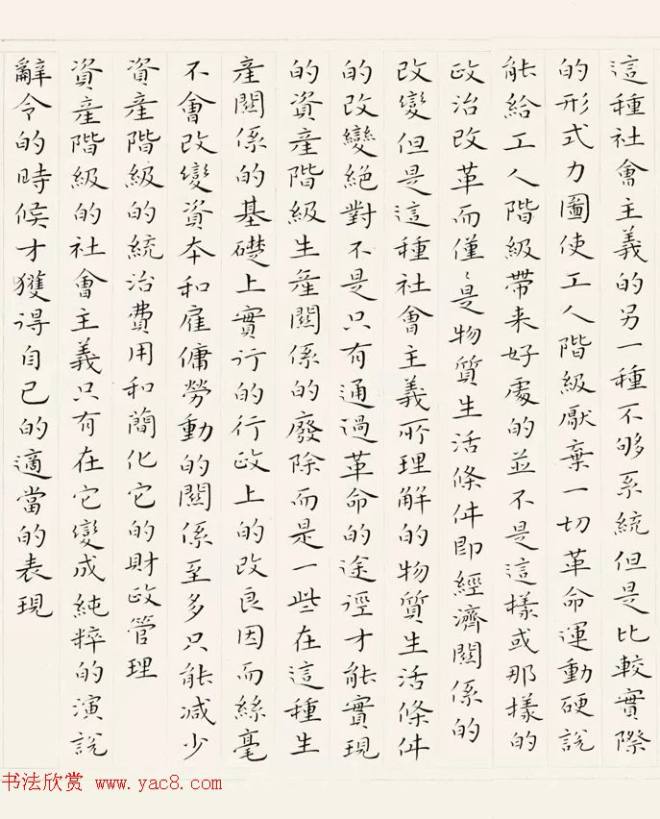 這種社會主義的另一種不够系統但是比較實際
的形式力圖使工人階級厭棄一切革命運動硬説
能給工人階級帶来好處的並不是這樣或那樣的
政治改革而僅〻是物質生活條件即經濟關係的
改變但是這種社會主義所理解的物質生活條件
的改變絕對不是只有通過革命的途徑才能實現
的資產階級生產關係的廢除而是一些在這種生
產關係的基礎上實行的行政上的改良因而絲毫
不會改變資本和雇傭勞動的關係至多只能減少
資產階級的統治費用和簡化它的財政管理
資產階級的社會主義只有在它變成純粹的演説
辭令的時候才獲得自己的適當的表現
书法欣赏 www.yac8.com